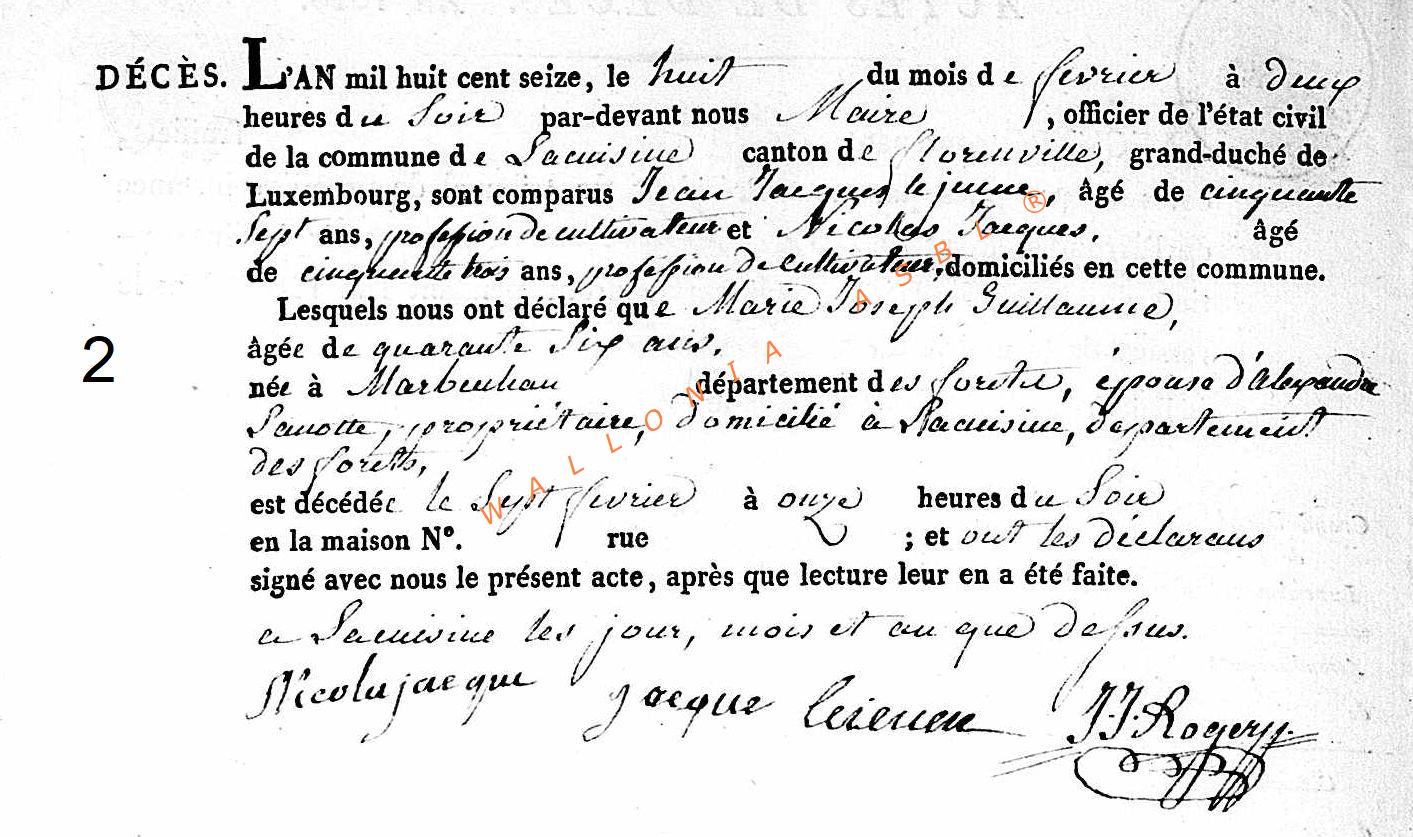 DÉCÈS. L'AN mil huit cent seize, le huit du mois de fevrier à deux
heures du Soir par-devant nous Maire, officier de l'état civil
de la commune de Lacuisine canton de florenville, grand-duché de
Luxembourg, sont comparus Jean Jacques le jeune, âgé de cinquante
Sept ans, profession de cultivateur et Nicolas Jacques, âgé
de cinquante trois ans, profession de cultivateur, domiciliés en cette commune.
Lesquels nous ont déclaré que Marie Joseph Guillaume,
âgée de quarante Six ans,
2
née à Marbeuhan département des forets, épouse d'Alexandre
Lanotte, propriétaire, domicilié à Lacuisine, departement
des forets,
est décédée le Sept fevrier à onze heures du Soir
en la maison N°. rue ; et ont les déclarans
signé avec nous le présent acte, après que lecture leur en a été faite.
a Lacuisine les jour, mois et an que dessus.
Nicola jacque jacque J.J. Rogery
WALLONIA ASBL ®